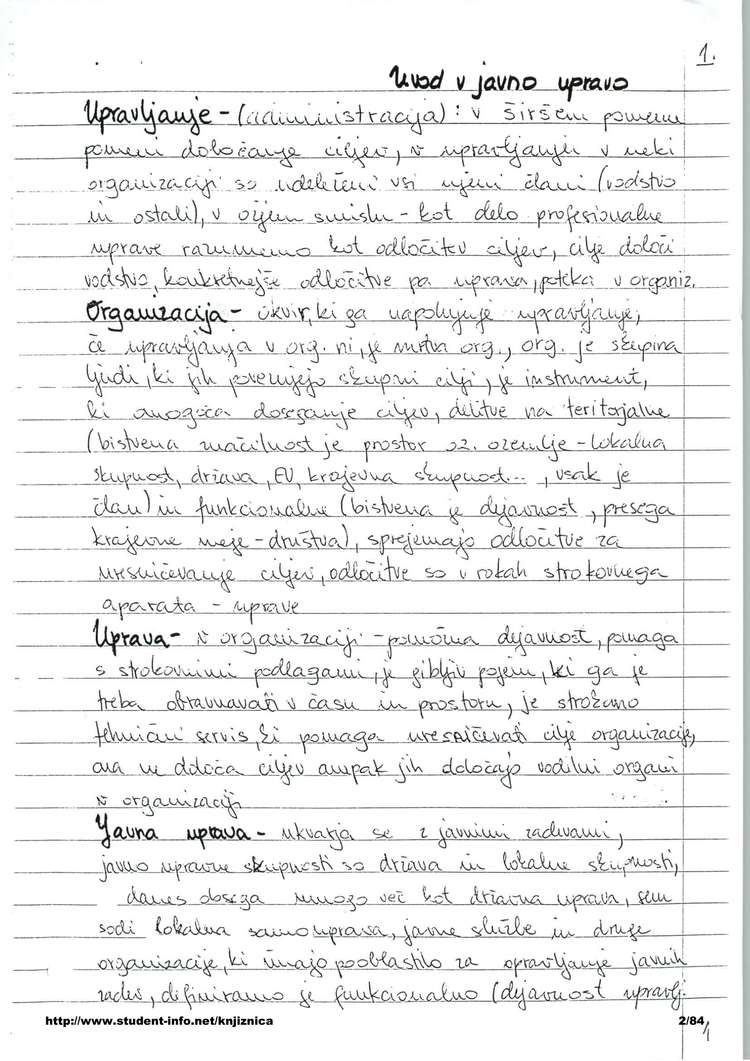 1.
Uvod v javno upravo
Upravljanje - (administracija): v širšem pomenu
pomeni določanje ciljev, v upravljanju v neki
organizaciji so udeleženi vsi njeni člani (vodstvo
in ostali), v ožjem smislu - kot delo profesionalne
uprave razumemo kot odločitev ciljev, cilje določi
vodstvo, konkretnejše odločitve pa uprava, poteka v organiz.
Organizacija - okvir, ki ga napolnjuje upravljanje,
če upravljanja v org. ni, je mrtva org., org. je skupina
ljudi, ki jih povezujejo skupni cilji, je instrument,
ki omogoča doseganje ciljev, delitve na teritorjalne
(bistvena značilnost je prostor oz. ozemlje - lokalna
skupnost, država, EU, krajevna skupnost..., vsak je
član) in funkcionalne (bistvena je dejavnost, presega
krajevne meje - društva), sprejemajo odločitve za
uresničevanje ciljev, odločitve so v rokah strokovnega
aparata - uprave
Uprava - v organizaciji - pomožna dejavnost, pomaga
s strokovnimi podlagami, je gibljiv pojem, ki ga je
treba obravnavati v času in prostoru, je strokovno
tehnični servis, ki pomaga uresničevati cilje organizacije,
ona ne določa ciljev ampak jih določajo vodilni organi
v organizaciji
Javna uprava - ukvarja se z javnimi zadevami,
javno upravne skupnosti so država in lokalne skupnosti,
danes obsega mnogo več kot državna uprava, sem
sodi lokalna samouprava, javne službe in druge
organizacije, ki imajo pooblastilo za opravljanje javnih
zadev, definiramo je funkcionalno (dejavnost upravlj.
http://www.student-info.net/knjiznica
2/84
1